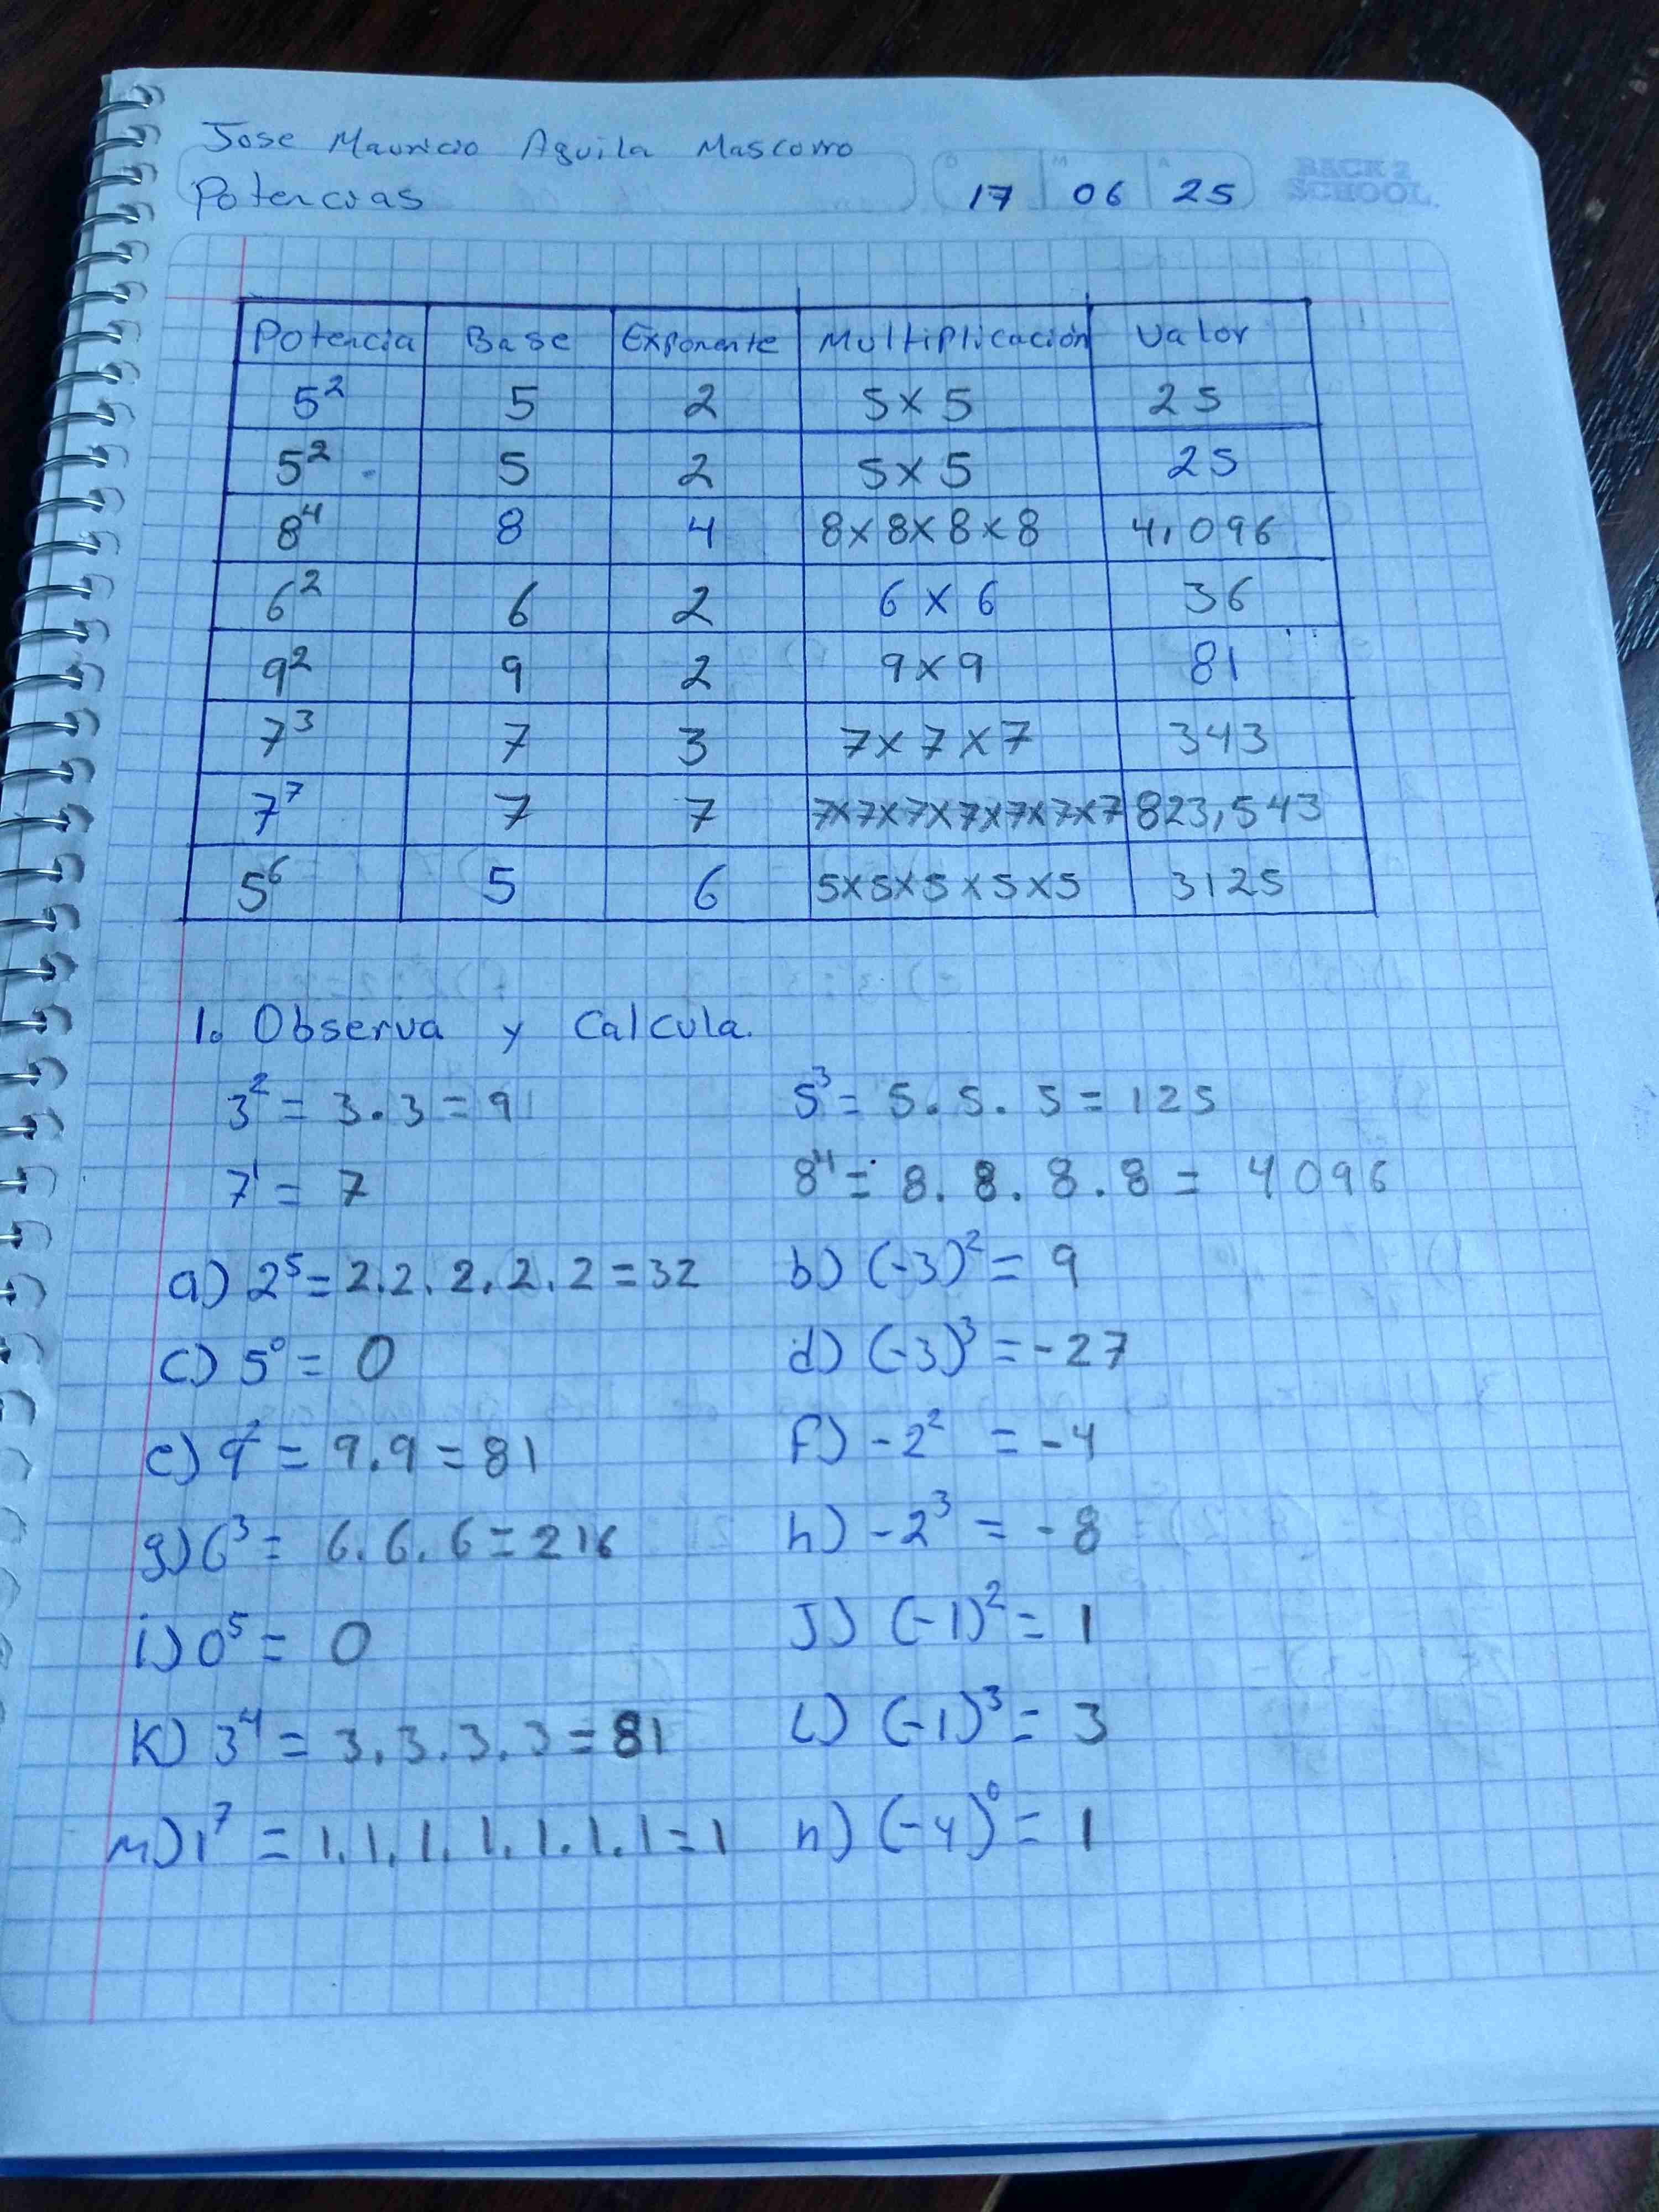 Jose Mauricio Aguila Mascorro
Potencias 17 06 25 BACK 2 SCHOOL.
D M A
Potencia Base Exponente Multiplicación Valor
5² 5 2 5 x 5 25
5² 5 2 5 x 5 25
8⁴ 8 4 8 x 8 x 8 x 8 4,096
6² 6 2 6 x 6 36
9² 9 2 9 x 9 81
7³ 7 3 7 x 7 x 7 343
7⁷ 7 7 7x7x7x7x7x7x7 823,543
5⁶ 5 6 5x5x5x5x5 3125
1. Observa y Calcula.
3² = 3.3 = 9 5³ = 5. 5. 5 = 125
7¹ = 7 8⁴ = 8. 8. 8. 8 = 4096
a) 2⁵ = 2.2.2.2.2 = 32 b) (-3)² = 9
c) 5⁰ = 0 d) (-3)³ = -27
e) 9² = 9.9 = 81 f) -2² = -4
g) 6³ = 6.6.6 = 216 h) -2³ = -8
i) 0⁵ = 0 J) (-1)² = 1
K) 3⁴ = 3.3.3.3 = 81 L) (-1)³ = 3
m) 1⁷ = 1.1.1.1.1.1.1 = 1 n) (-4)⁰ = 1